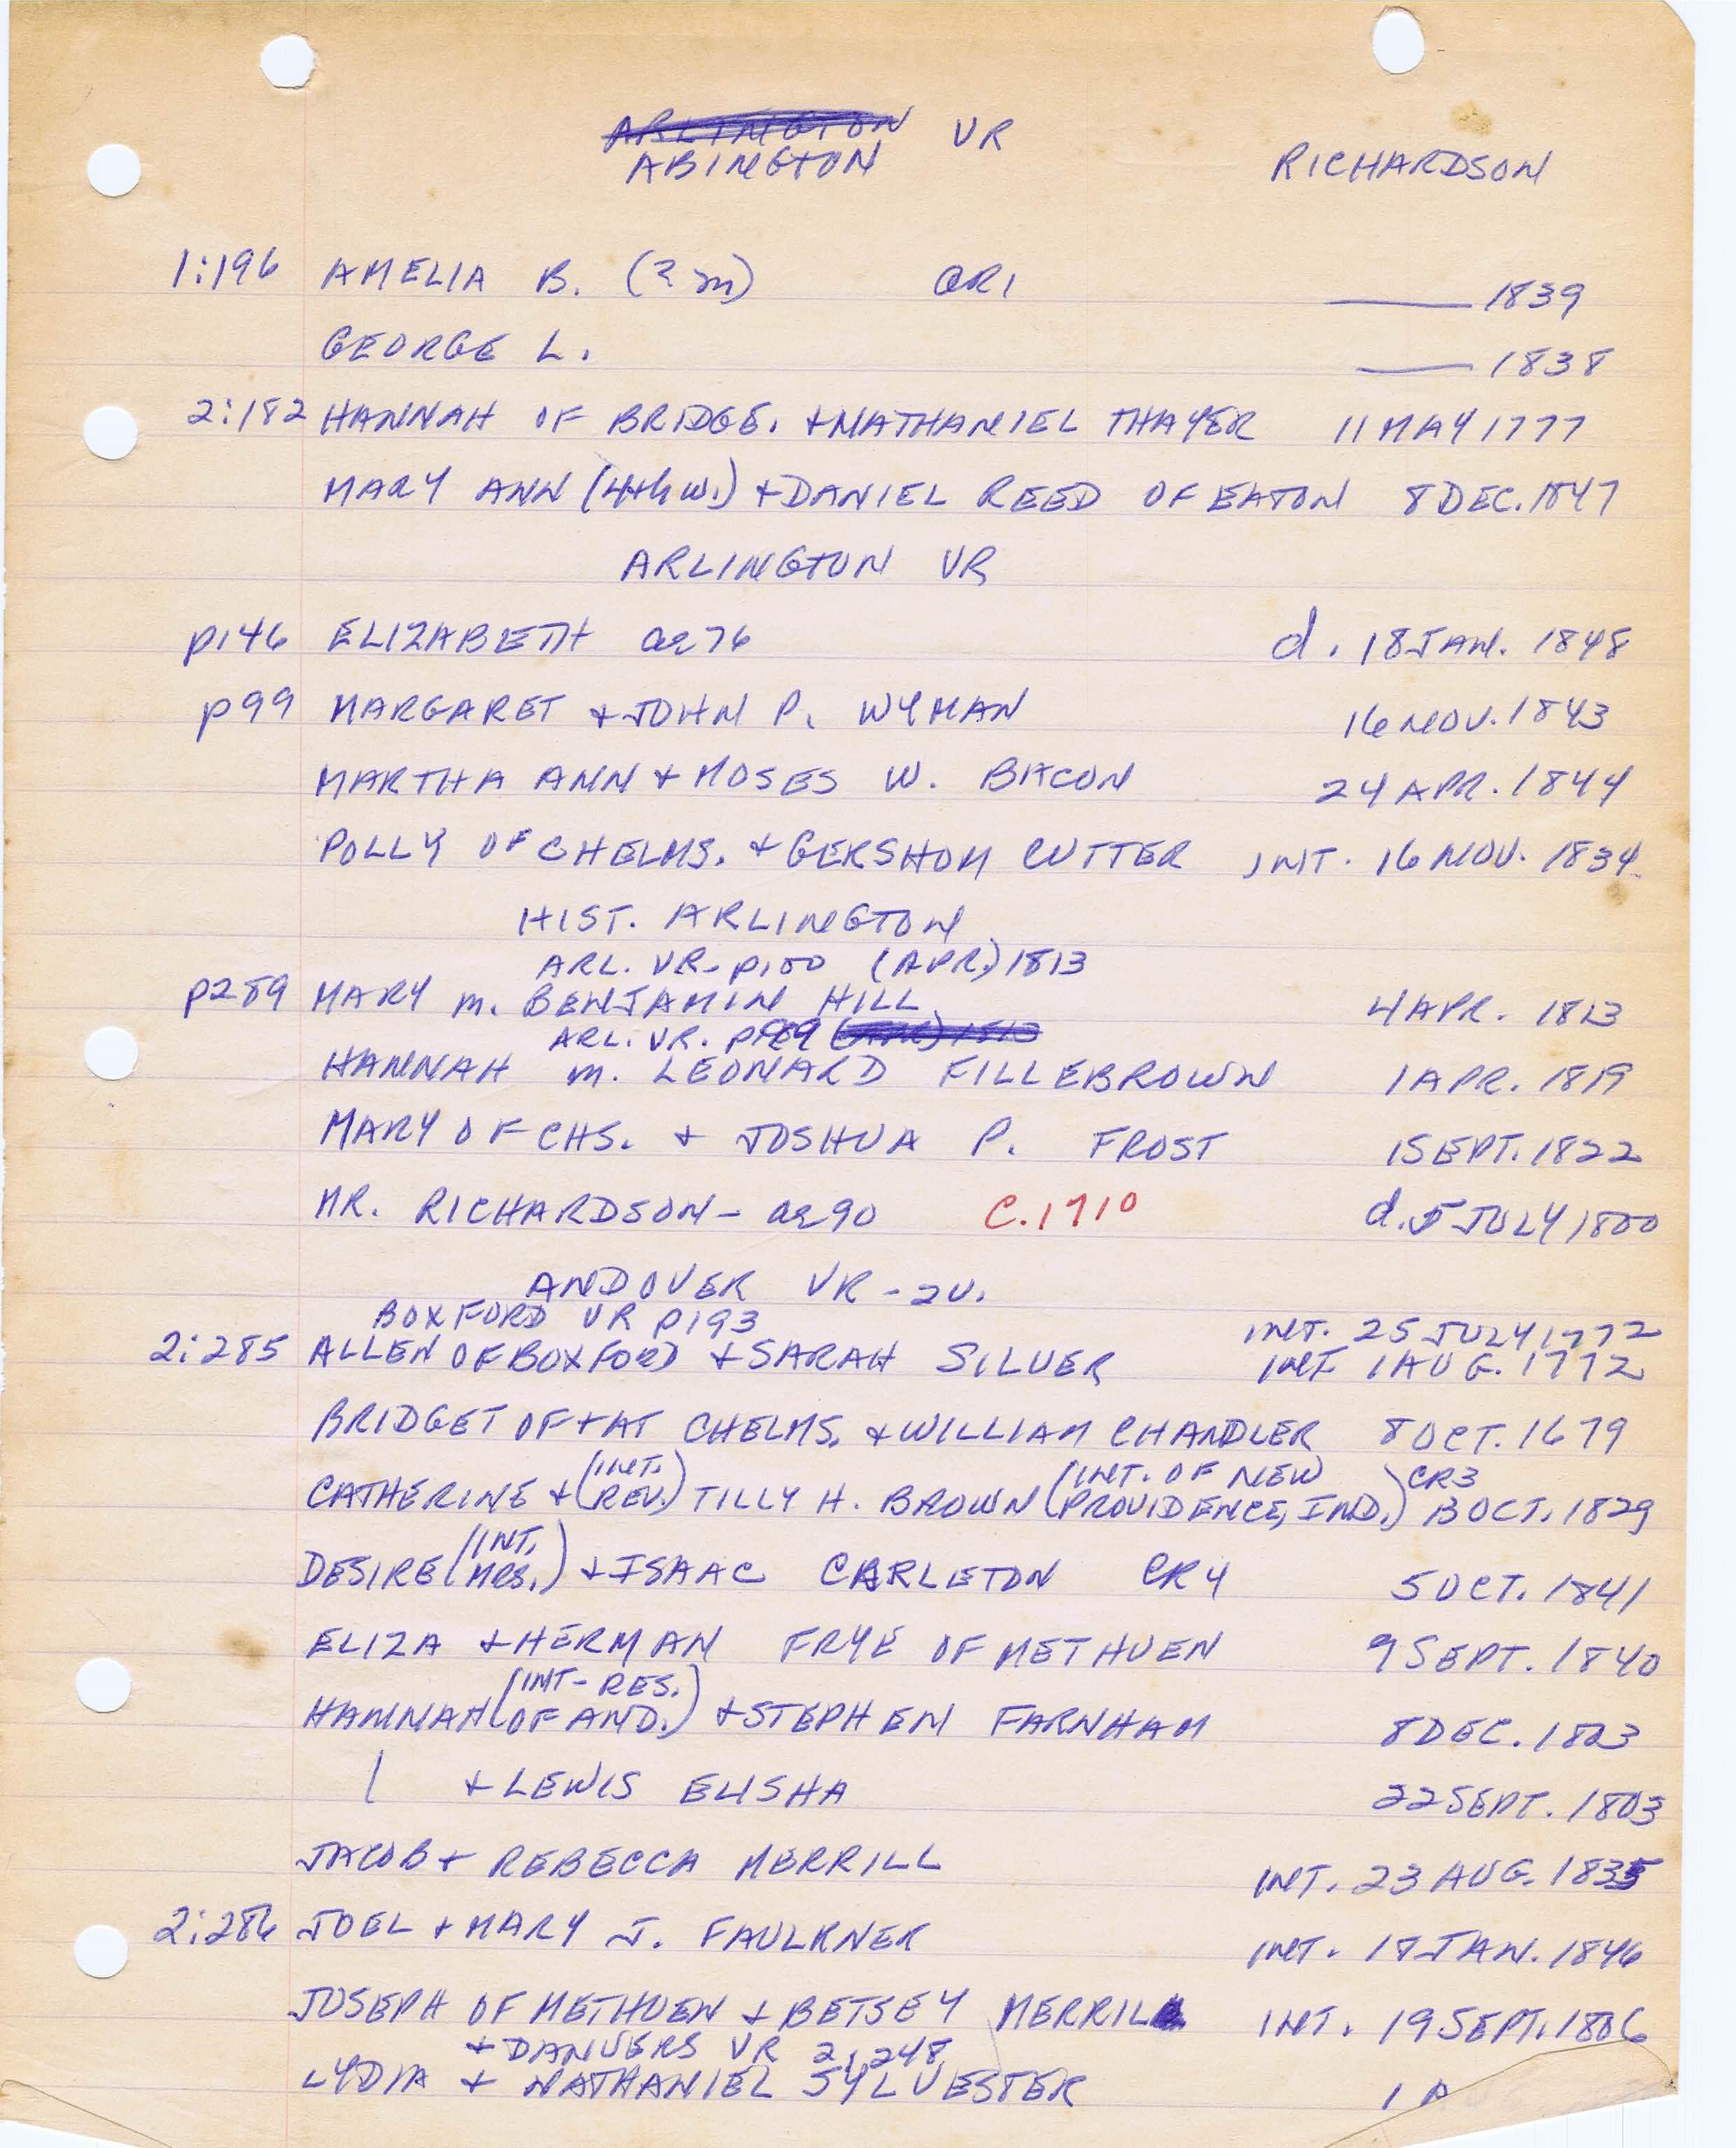 ARLINGTON VR
ABINGTON
RICHARDSON
1:196 AMELIA B. (2 m) GR1 — 1839
GEORGE L. — 1838
2:182 HANNAH OF BRIDGE. + NATHANIEL THAYER 11 MAY 1777
MARY ANN (4th w.) + DANIEL REED OF EATON 8 DEC. 1847
ARLINGTON VR
p146 ELIZABETH ae 76 d. 18 JAN. 1848
p99 MARGARET + JOHN P. WYMAN 16 NOV. 1843
MARTHA ANN + MOSES W. BACON 24 APR. 1844
POLLY OF CHELMS. + GERSHOM CUTTER INT. 16 NOV. 1834
HIST. ARLINGTON
ARL. VR- p100 (APR.) 1813
p289 MARY m. BENJAMIN HILL 4 APR. 1813
ARL. VR. (APR) 1813
HANNAH m. LEONARD FILLEBROWN 1 APR. 1819
MARY OF CHS. + JOSHUA P. FROST 1 SEPT. 1822
MR. RICHARDSON - ae 90 C. 1710 d. 5 JULY 1800
ANDOVER VR - 2V.
BOXFORD VR p193 INT. 25 JULY 1772
2:285 ALLEN OF BOXFORD + SARAH SILVER INT. 1 AUG. 1772
BRIDGET OF + AT CHELMS. + WILLIAM CHANDLER 8 OCT. 1679
CATHERINE + (INT. REV.) TILLY H. BROWN (INT. OF NEW PROVIDENCE, IND.) CR3 13 OCT. 1829
DESIRE (INT. MRS.) + ISAAC CARLETON CR4 5 OCT. 1841
ELIZA + HERMAN FRYE OF METHUEN 9 SEPT. 1840
HANNAH (INT-RES. OF AND.) + STEPHEN FARNHAM 8 DEC. 1823
| + LEWIS ELISHA 22 SEPT. 1803
JACOB + REBECCA MERRILL INT. 23 AUG. 1835
2:286 JOEL + MARY J. FAULKNER INT. 18 JAN. 1846
JOSEPH OF METHUEN + BETSEY MERRILL INT. 19 SEPT. 1806
+ DANVERS VR 2:248
LYDIA + NATHANIEL SYLVESTER 1